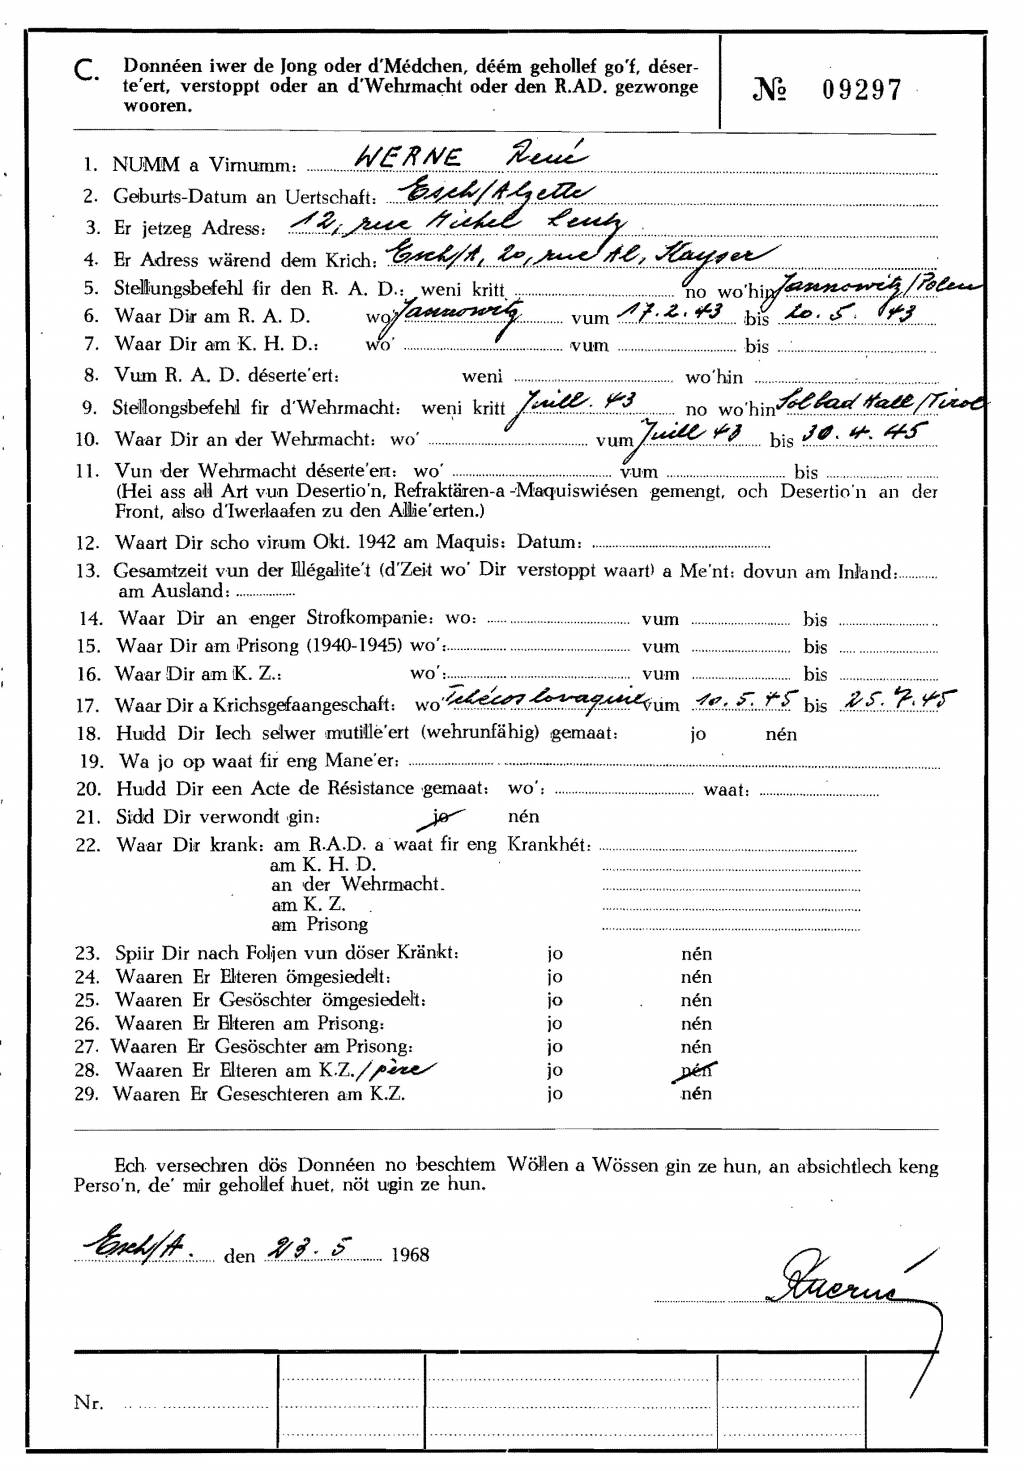 C. Donnéen iwer de Jong oder d'Médchen, déém gehollef go'f, déser-
te'ert, verstoppt oder an d'Wehrmacht oder den R.AD. gezwonge
wooren.
№ 09297
1. NUMM a Virnumm: WERNE René
2. Geburts-Datum an Uertschaft: Esch/Alzette
3. Er jetzeg Adress: 12, rue Michel Lentz
4. Er Adress wärend dem Krich: Esch/A, 20, rue Al, Kayser
5. Stellungsbefehl fir den R. A. D.: weni kritt no wo'hin Jannowitz/Polen
6. Waar Dir am R. A. D. wo' Jannowitz vum 17.2.43 bis 20.5.43
7. Waar Dir am K. H. D.: wo' vum bis
8. Vum R. A. D. déserte'ert: weni wo'hin
9. Stellongsbefehl fir d'Wehrmacht: weni kritt Juill. 43 no wo'hin Solbad Hall/Tirol
10. Waar Dir an der Wehrmacht: wo' vum Juill 43 bis 30.4.45
11. Vun der Wehrmacht déserte'ert: wo' vum bis
(Hei ass all Art vun Desertio'n, Refraktären-a-Maquiswiésen gemengt, och Desertio'n an der
Front, also d'Iwerlaafen zu den Allie'erten.)
12. Waart Dir scho virum Okt. 1942 am Maquis: Datum:
13. Gesamtzeit vun der Illégalite't (d'Zeit wo' Dir verstoppt waart) a Me'nt: dovun am Inland:
am Ausland:
14. Waar Dir an enger Strofkompanie: wo: vum bis
15. Waar Dir am Prisong (1940-1945) wo': vum bis
16. Waar Dir am K. Z.: wo': vum bis
17. Waar Dir a Krichsgefaangeschaft: wo' Tchécoslovaquie vum 10.5.45 bis 25.7.45
18. Hudd Dir Iech selwer mutille'ert (wehrunfähig) gemaat: jo nén
19. Wa jo op waat fir eng Mane'er:
20. Hudd Dir een Acte de Résistance gemaat: wo': waat:
21. Sidd Dir verwondt gin: jo nén
22. Waar Dir krank: am R.A.D. a waat fir eng Krankhét:
am K. H. D.
an der Wehrmacht.
am K. Z.
am Prisong
23. Spiir Dir nach Foljen vun döser Kränkt: jo nén
24. Waaren Er Elteren ömgesiedelt: jo nén
25. Waaren Er Gesöschter ömgesiedelt: jo nén
26. Waaren Er Elteren am Prisong: jo nén
27. Waaren Er Gesöschter am Prisong: jo nén
28. Waaren Er Elteren am K.Z. /père jo nén
29. Waaren Er Geseschteren am K.Z. jo nén
Ech versechren dös Donnéen no beschtem Wöllen a Wössen gin ze hun, an absichtlech keng
Perso'n, de' mir gehollef huet, nöt ugin ze hun.
Esch/A. den 23.5 1968
Nr.